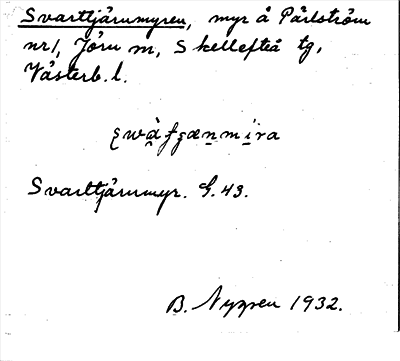 Svarttjärnmyren, myr å Pärlström
nr 1, Jörn m, Skellefteå tg,
Västerb. l.
Svarttjärnmyr. G. 43.
B. Nygren 1932.